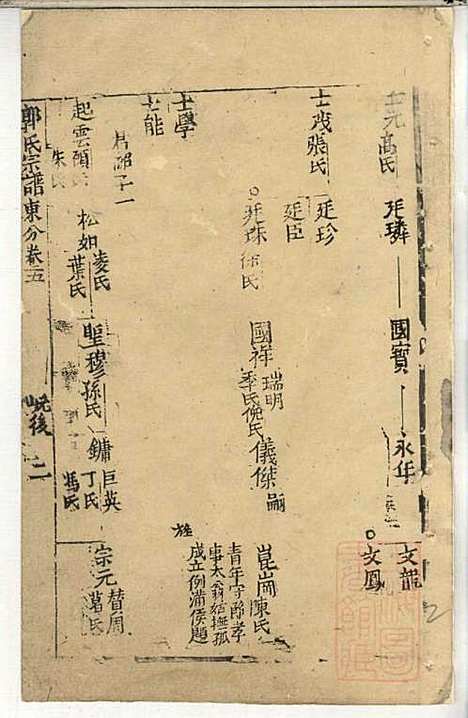 士元高氏 廷璘 國寶 永年
文龍
文鳳
士茂張氏 廷珍
廷臣
廷珠徐氏
國祥 瑞明
季氏倪氏 儀傑嗣
崑岡陳氏
旌
青年守節孝
事太翁姑撫孤
成立例滿侯題
士學
士能
君郃子一
起雲顧氏
朱氏
松如凌氏
葉氏
聖穆孫氏 鏞巨英
丁氏
馮氏
宗元替周
葛氏
郭氏宗譜東分卷五 峴後 二
2